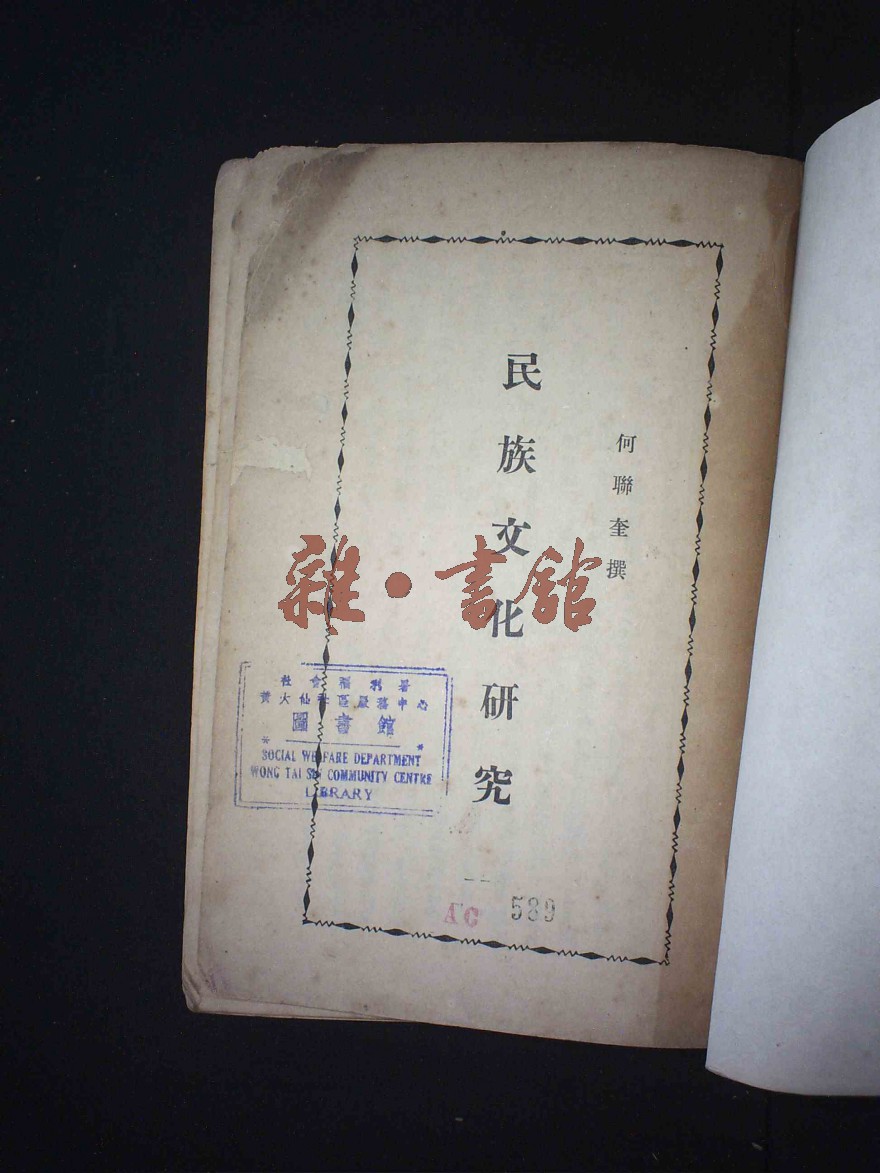 何聯奎撰
民族文化研究
一
雜·書館
社會福利署
黃大仙社區服務中心
圖書館
SOCIAL WELFARE DEPARTMENT
WONG TAI SIN COMMUNITY CENTRE
LIBRARY
AC 589